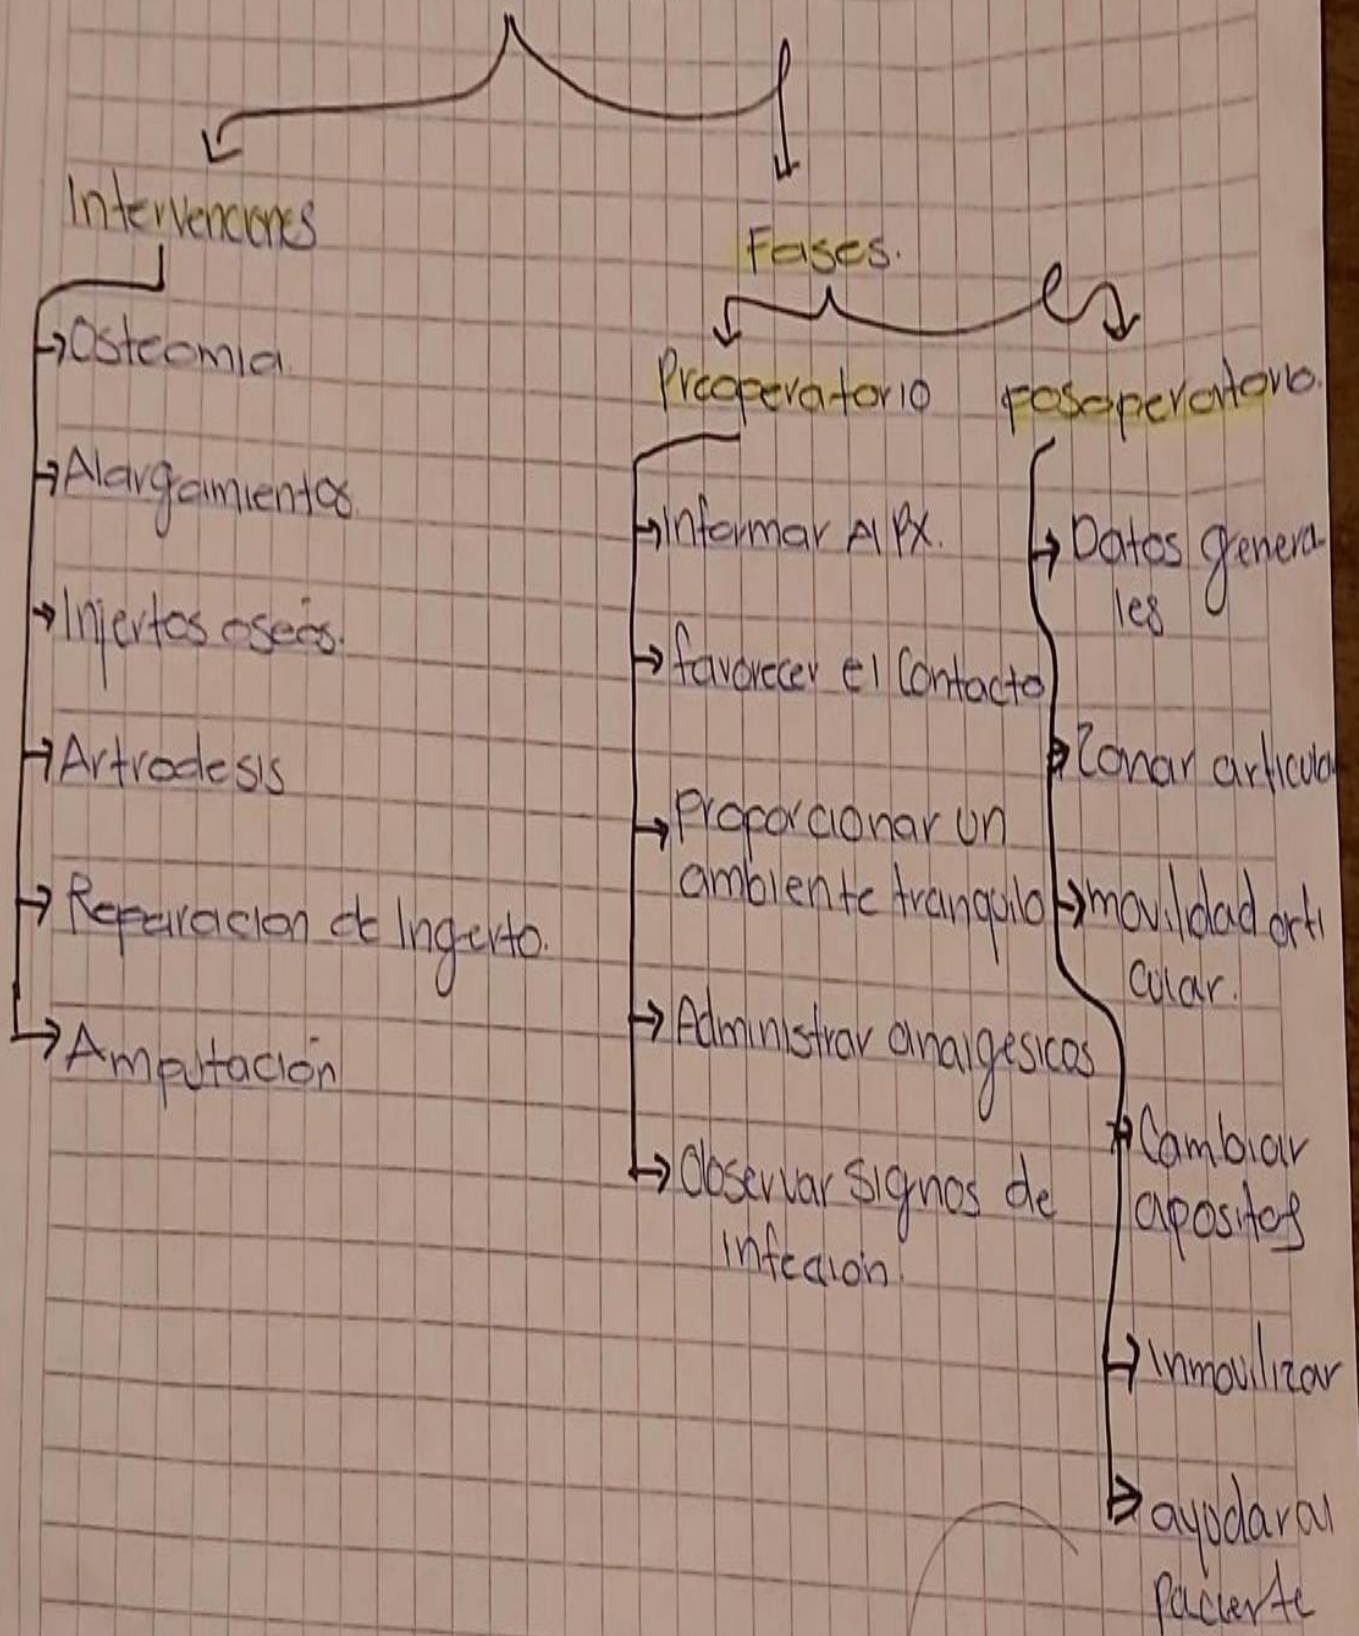 Intervenciones
Osteomia.
Alargamientos
Injertos oseós.
Artrodesis
Reparacion de Ingerto.
Amputación
Fases.
Preoperatorio
Informar Al PX.
favorecer el Contacto
Proporcionar un
ambiente tranquilo
Administrar analgesicos
Observar Signos de
infección.
posoperatorio.
Datos genera-
les
Zonar articula
movilidad arti
cular.
Cambiar
apositos
inmovilizar
ayudar al
paciente